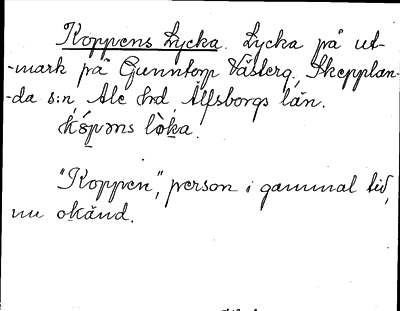 Koppens Lycka. Lycka på ut-
-mark på Gunntorp Västerg, Skepplan-
-da s:n, Ale Hrd, Älfsborgs län.
"Koppen", person i gammal tid,
nu okänd.